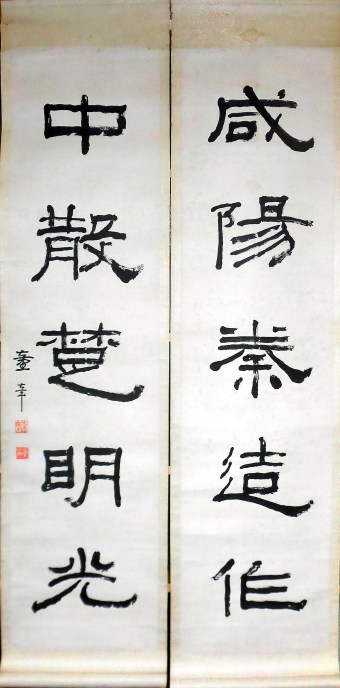 咸陽秦造作
中散楚明光